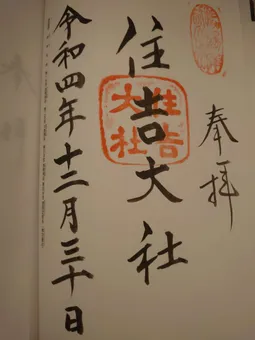 奉拝
住吉大社
住吉大社
令和四年十二月三十日